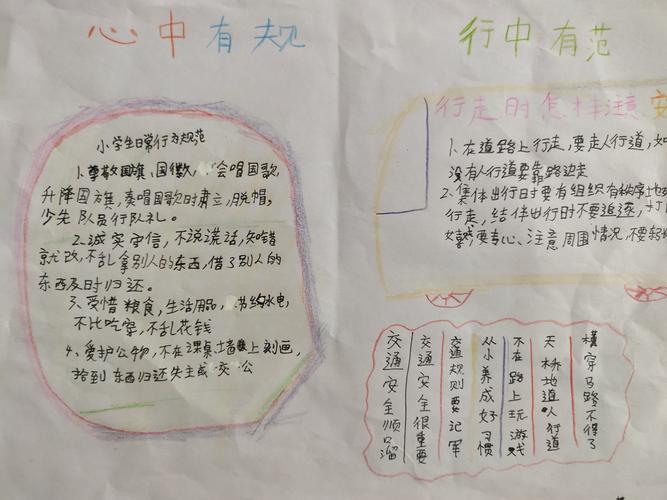 心中有规
行中有范
小学生日常行为规范
1、尊敬国旗、国徽,会唱国歌
升降国旗,奏唱国歌时肃立,脱帽,
少先队员行队礼。
2、诚实守信,不说谎话,知错
就改,不乱拿别人的东西,借了别人的
东西及时归还。
3、爱惜粮食,生活用品,节约水电,
不比吃穿,不乱花钱
4、爱护公物,不在课桌墙上刻画,
拾到东西归还失主或交公
行走时怎样注意安
1、在道路上行走,要走人行道,如
没有人行道要靠路边走
2、集体出行时要有组织有秩序地
行走,结伴出行时不要追逐,打
嬉戏要专心、注意周围情况,不要
横穿马路不得了
天桥地道人行道
不在路上玩游戏
从小养成好习惯
交通规则要记牢
交通安全很重要
交通安全顺口溜